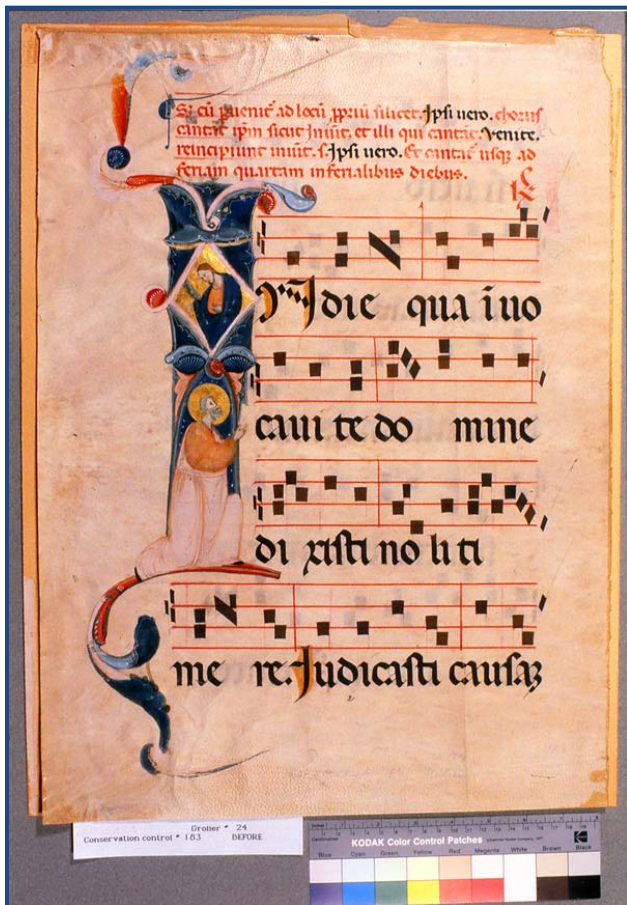 Sʒ cū ꝑuenit̄ ad locū ꝓpriū silicet. Ipsi uero. chorus
cantat ip̄m sicut Inuit̄. et illi qui cantāt. Venite.
reincipiunt inuit̄. s. Ipsi uero. Et cantat̄ usqꝫ ad
feriam quartam in ferialibus diebus.
die qua īuo
caui te do mine
di xisti no li ti
me re. Iudicasti causaꝫ
Grolier # 24
Conservation control # 183 BEFORE
KODAK Color Control Patches
Blue Cyan Green Yellow Red Magenta White Brown Black